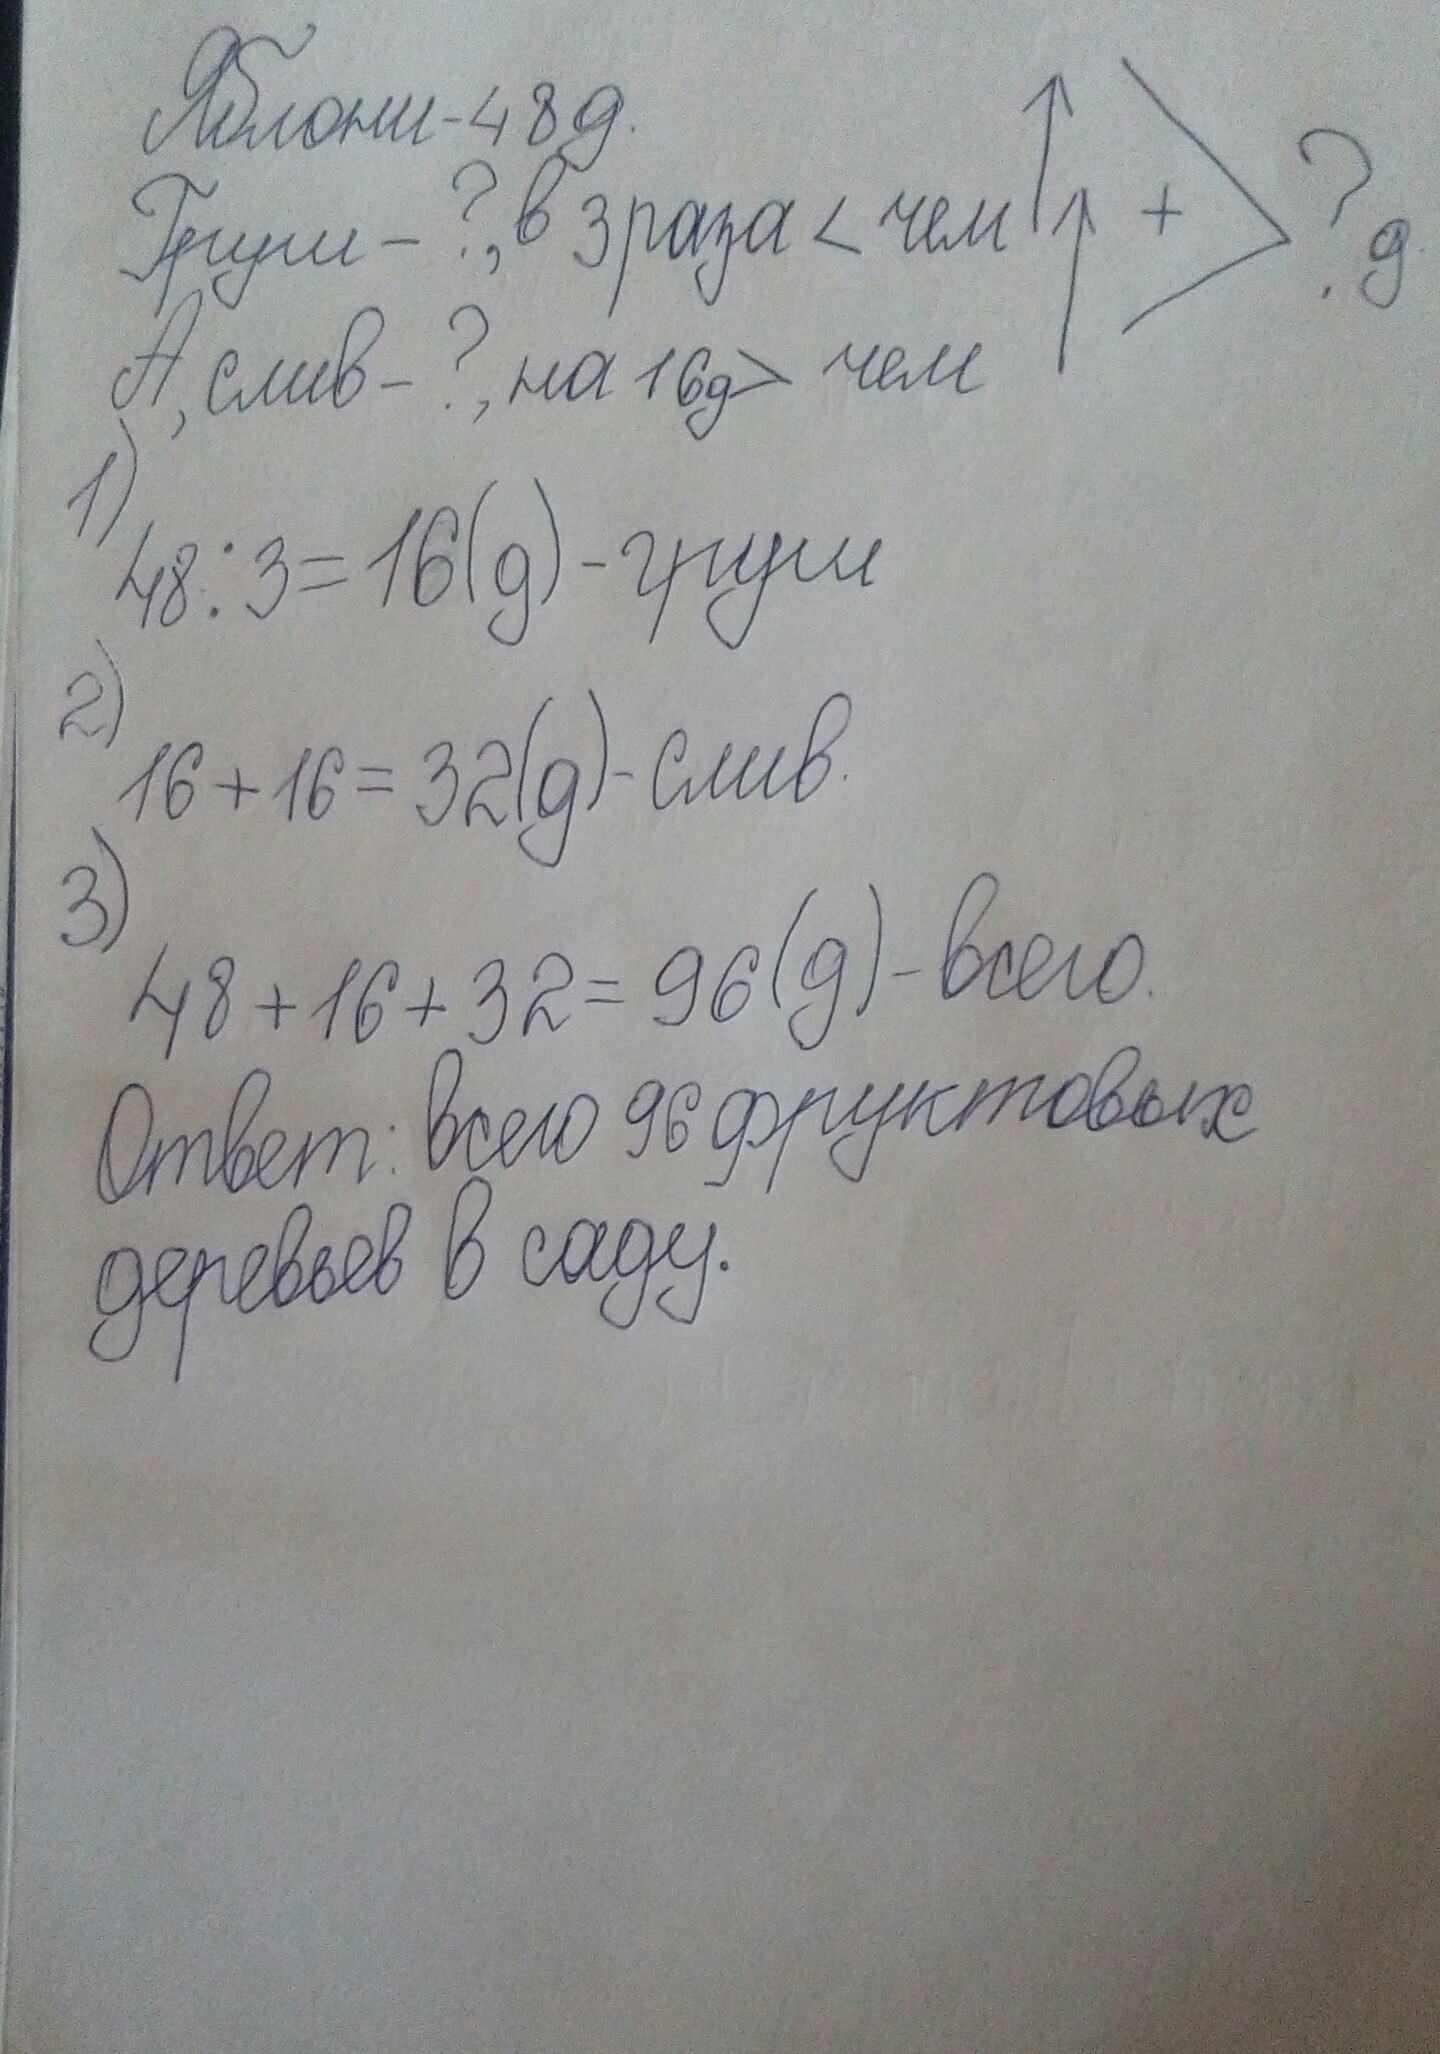 Яблони-48д.
Груш-?, в 3 раза < чем + ? д.
А, слив-?, на 16д> чем
1)
48:3=16(д)-груш
2)
16+16=32(д)-слив.
3)
48+16+32=96(д)-всего.
Ответ: всего 96 фруктовых
деревьев в саду.